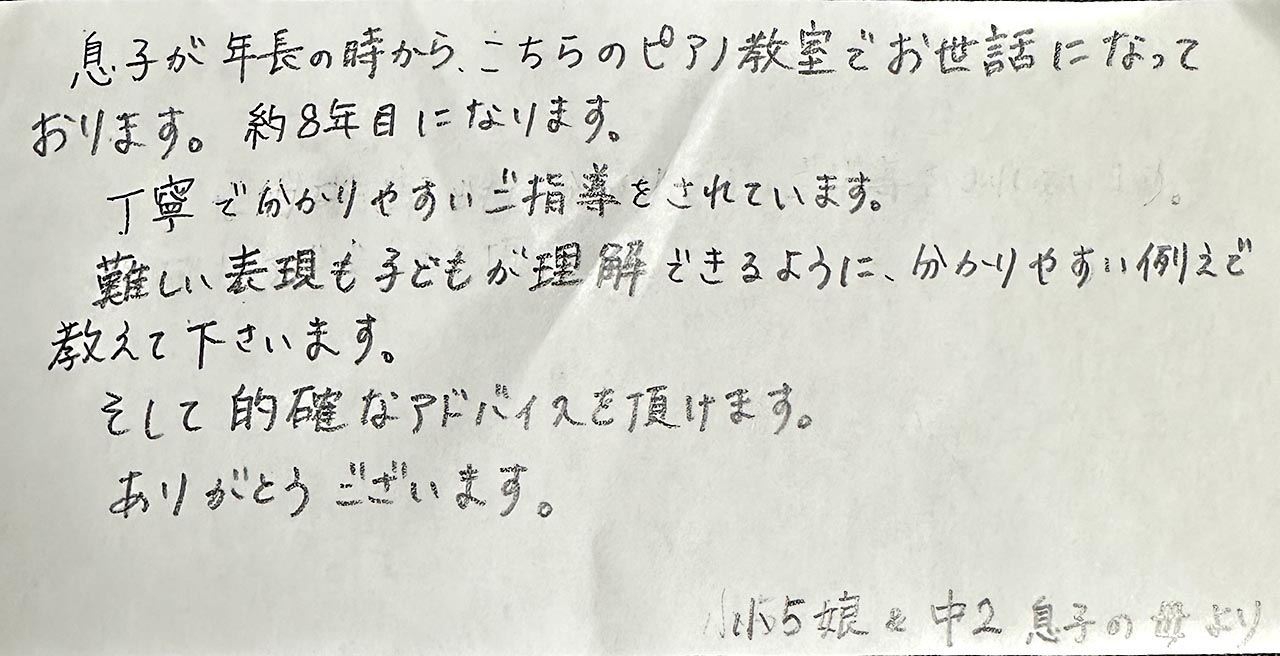 息子が年長の時から、こちらのピアノ教室でお世話になって
おります。約8年目になります。
丁寧で分かりやすいご指導をされています。
難しい表現も子どもが理解できるように、分かりやすい例えで
教えて下さいます。
そして的確なアドバイスを頂けます。
ありがとうございます。
小5娘と中2息子の母より